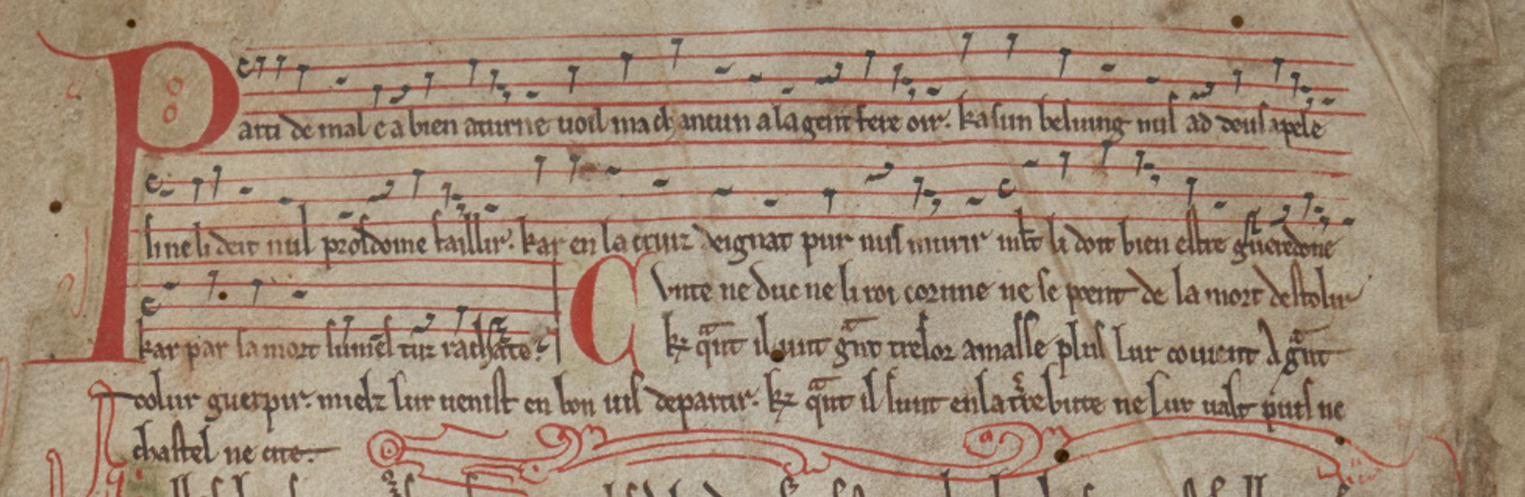 Parti de mal e a bien aturne uoil ma chancun a la gent fere oir. kasun besuing nus ad deus apele
si ne li deit nul prosdome faillir. kar en la cruiz deignat pur nus murir mlt li doit bien estre gueredone
kar par sa mort sumes tuz rachate.
Cunte ne duc ne li roi corune ne se poent de la mort destolir
kr quāt il unt gnt tresor amasse plus lur couient A gnt
dolur guerpir. mielz lur uenist en bon us departir. kr quāt il sunt en la terre bute ne lur ualt puis ne
chastel ne cite.